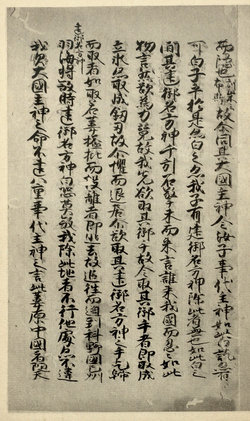 而隱也故尓問其大國主神今汝子事代主神如此白訖亦有
可白子乎於是亦白之亦我子有建御名方神除此者無也如此白之
間其建御名方神千引石擎手末而来言誰来我國而忍々如此
物言然欲為力競故我先欲取其御手故令取其御手者即取成
立氷亦取成釼刃故尓懼而退居尓欲取其建御名方神之手乞歸
而取者如取若葦搤批而投離者即逃去故追往而迫到科野國之州
羽海将殺時建御名方神白恐莫殺我除此地者不行他處亦不違
我父大國主神之命不違八重事代主神之言此葦原中國者随天